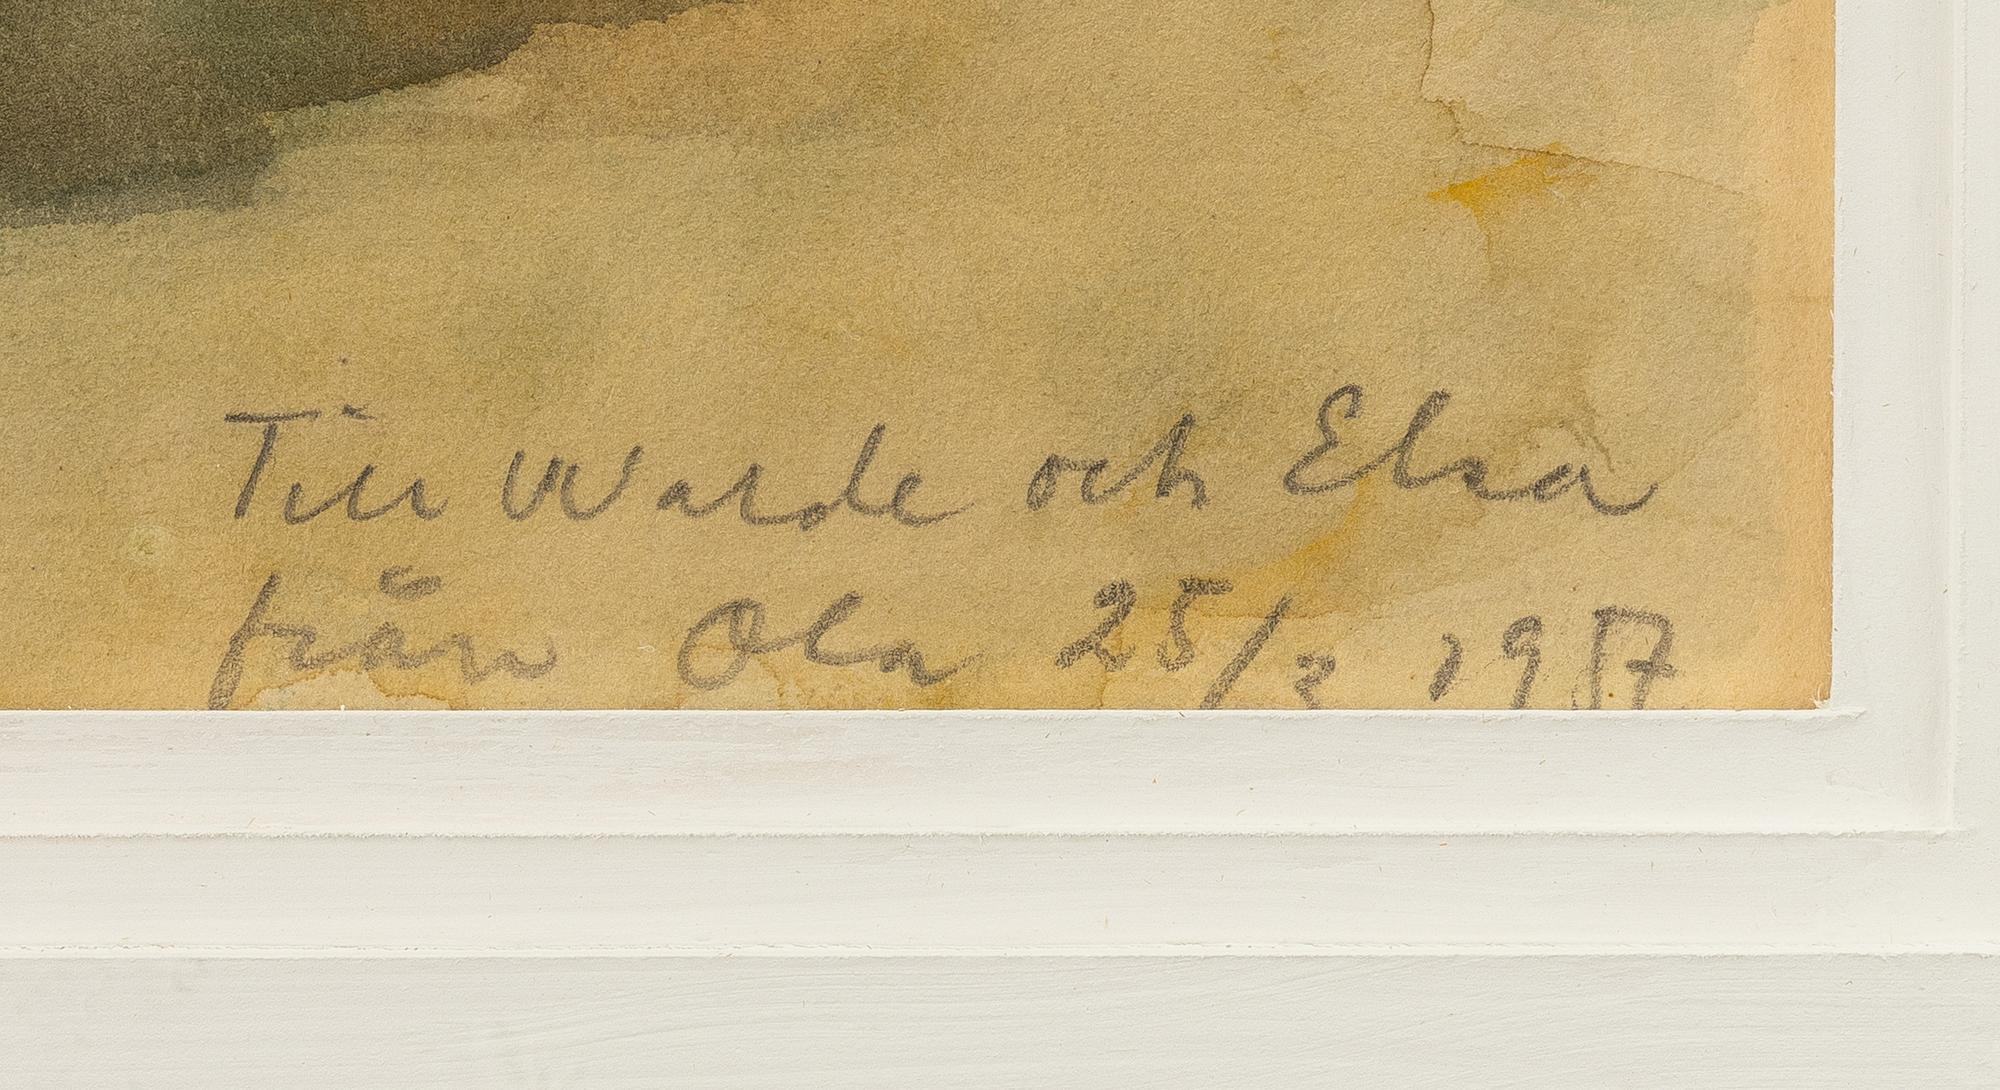 Till Walde och Elsa
från Ola 25/2 1957